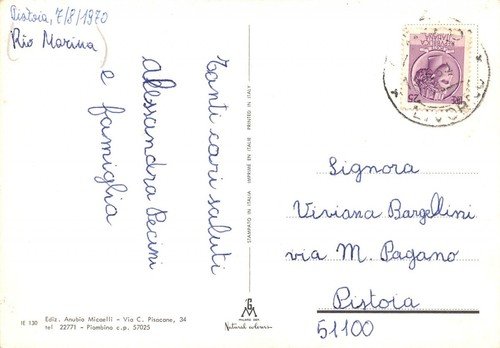 Pistoia, 7/8/1970
Rio Marina
Tanti cari saluti
Alessandra Pecini
e famiglia
STAMPATO IN ITALIA IMPRIMÉ EN ITALIE PRINTED IN ITALY
Signora
Viviana Bargellini
via M. Pagano
Pistoia
51100
IE 130
Ediz. Anubio Micaelli - Via C. Pisacane, 34
tel 22771 - Piombino c.p. 57025
GM
Natural colorario
LIVORNO
25